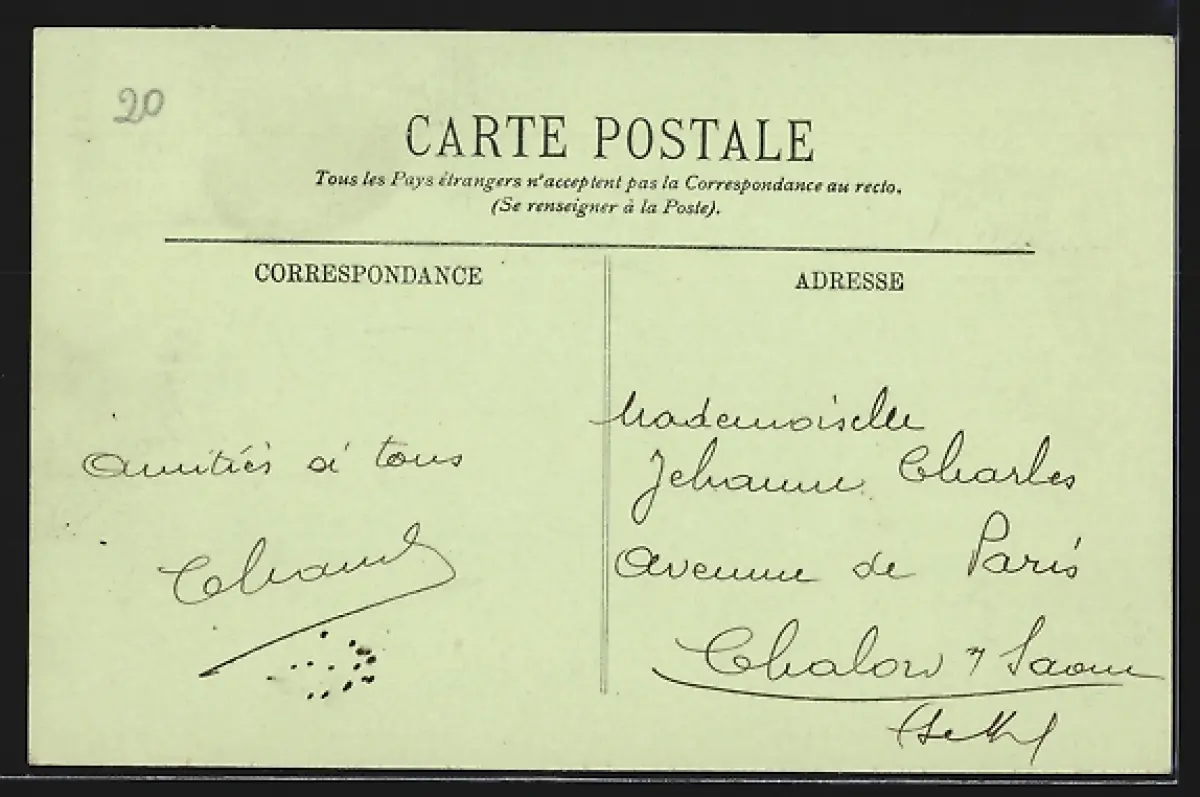 20
CARTE POSTALE
Tous les Pays étrangers n'acceptent pas la Correspondance au recto.
(Se renseigner à la Poste).
CORRESPONDANCE
amitiés à tous
ADRESSE
Mademoiselle
Jehanne Charles
Avenue de Paris
Chalon s/ Saone